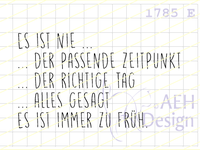 1785 E
ES IST NIE ...
... DER PASSENDE ZEITPUNKT
... DER RICHTIGE TAG
... ALLES GESAGT
ES IST IMMER ZU FRÜH.
AEH
Design